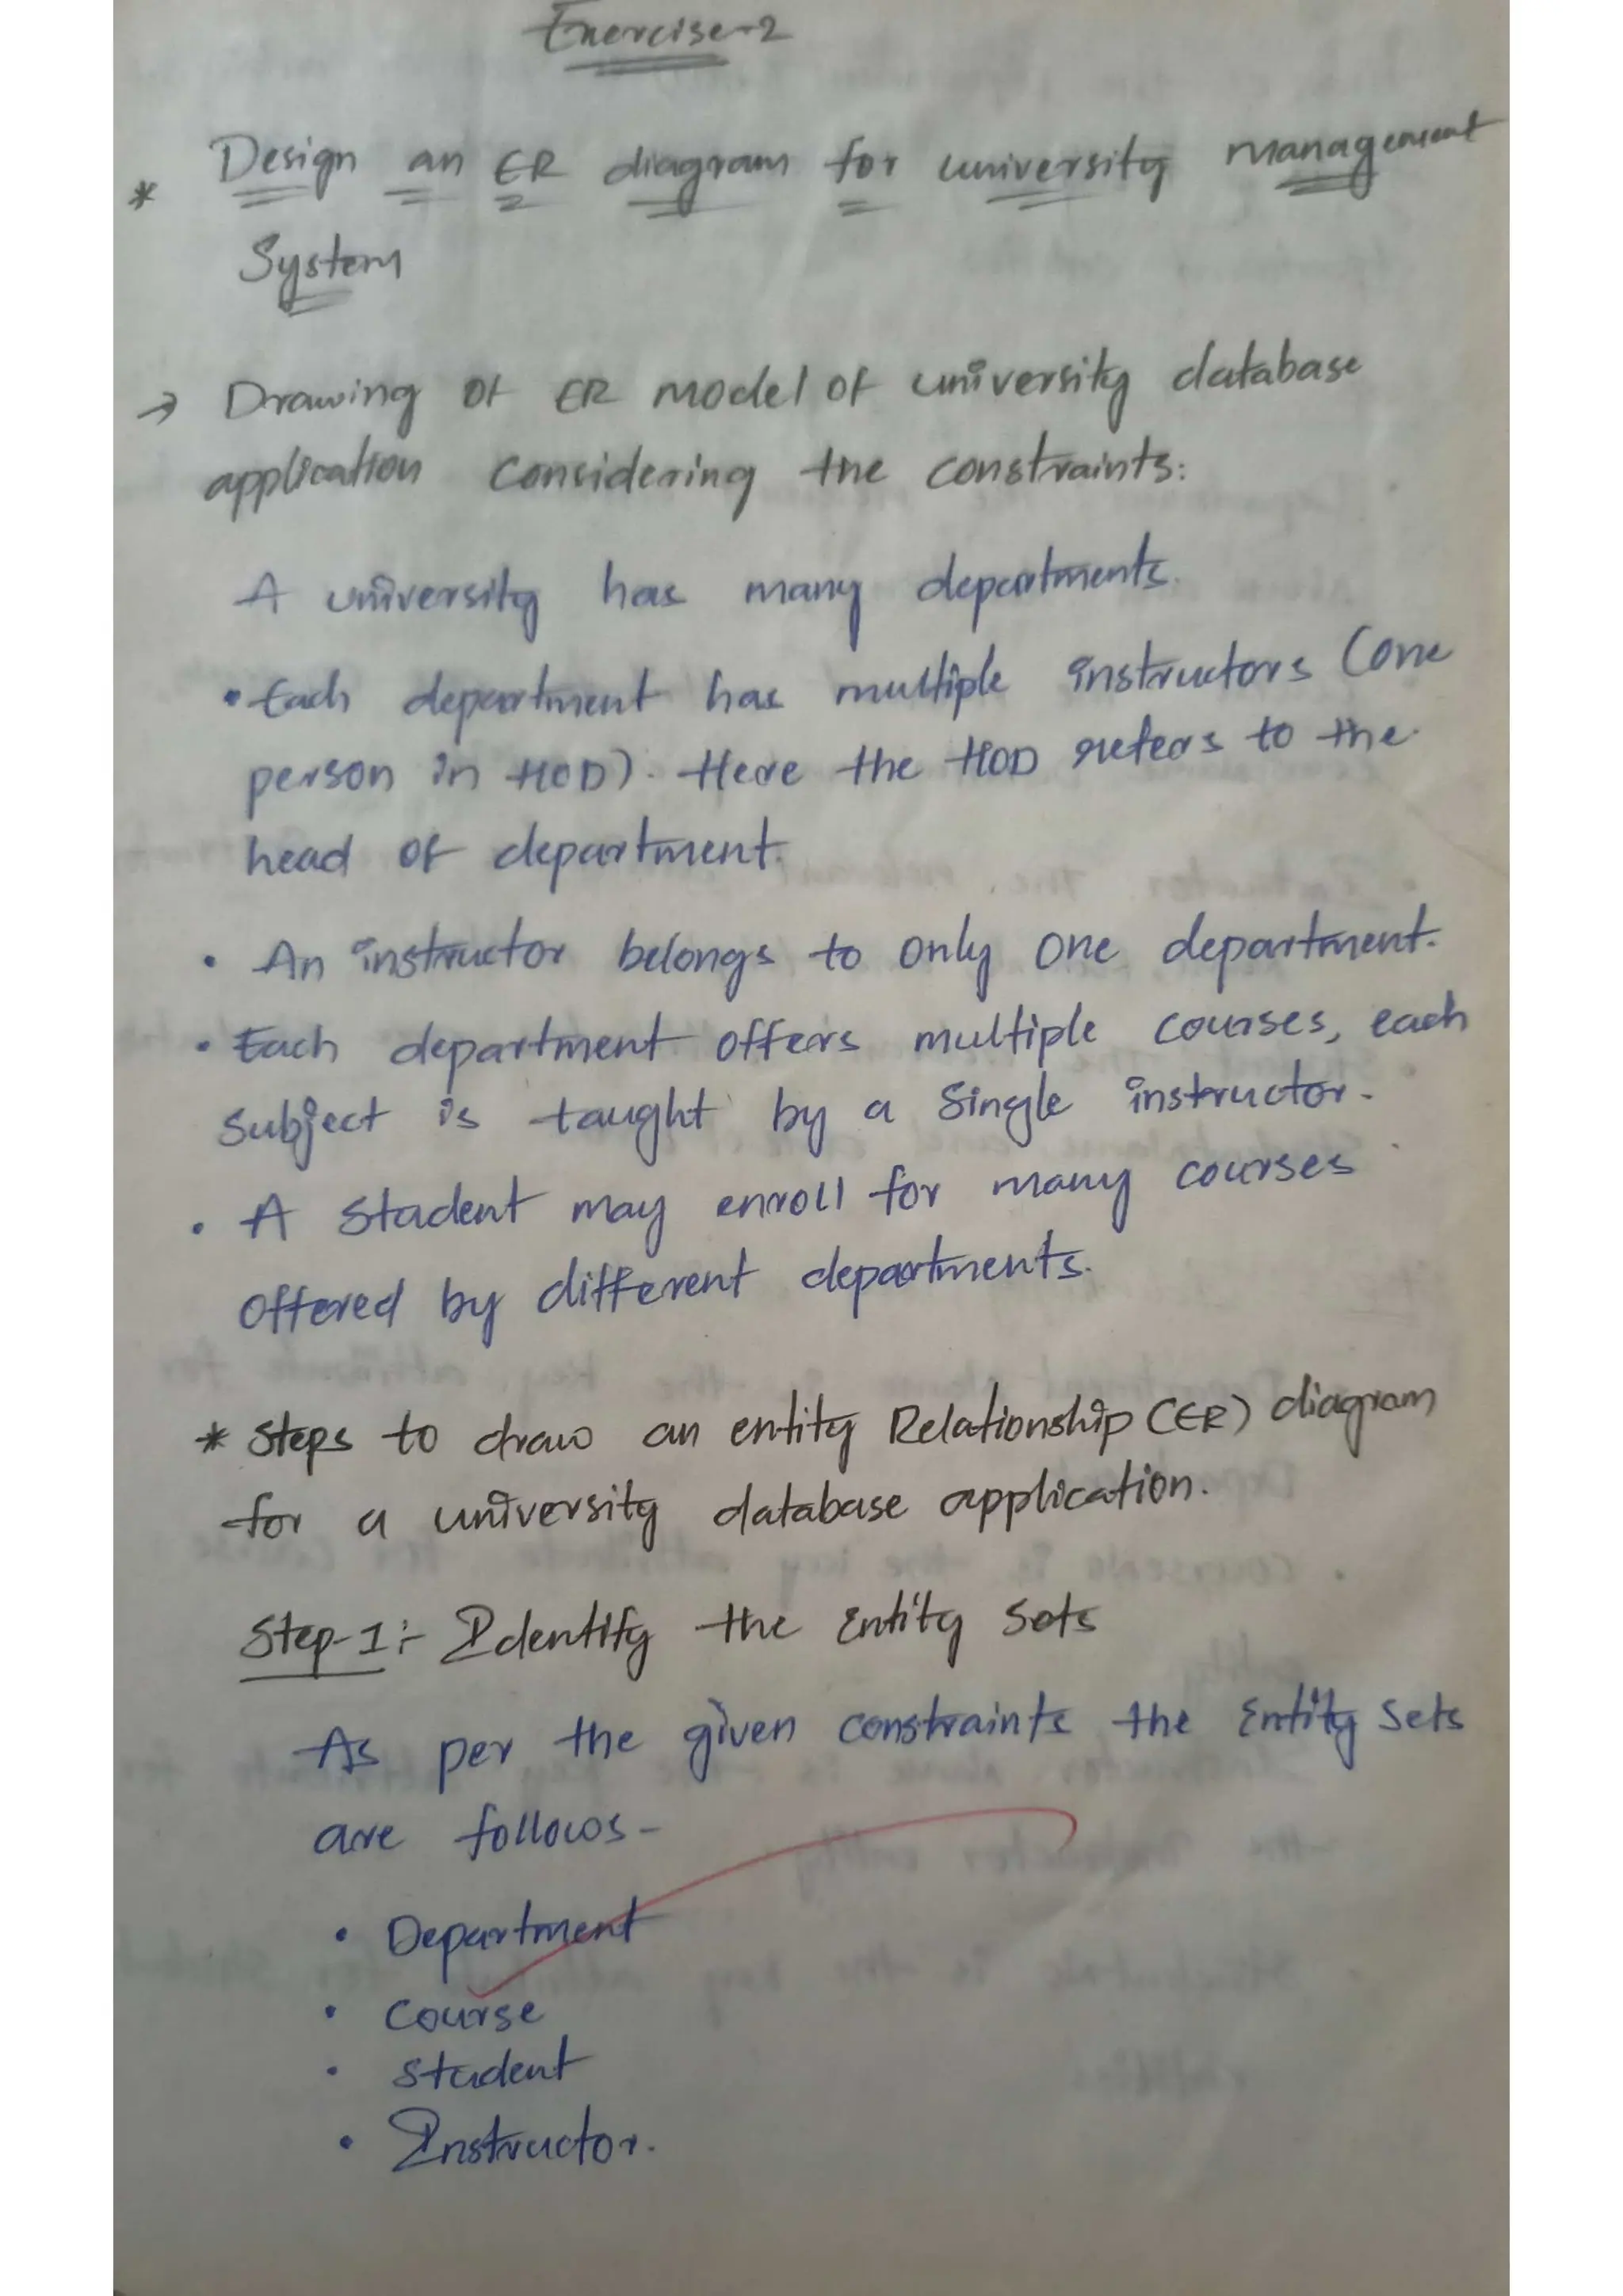 Exercise-2
* Design an ER diagram for university management
System
→ Drawing of ER model of university database
application Considering the constraints:
A university has many departments.
• Each department has multiple instructors (one
person in HOD). Here the HOD refers to the
head of department.
• An instructor belongs to only one department.
• Each department offers multiple courses, each
subject is taught by a single instructor.
• A student may enroll for many courses
offered by different departments.
* Steps to draw an entity Relationship (ER) diagram
for a university database application.
Step-1:- Identify the Entity Sets
As per the given constraints the Entity Sets
are follows-
• Department
• Course
• Student
• Instructor.